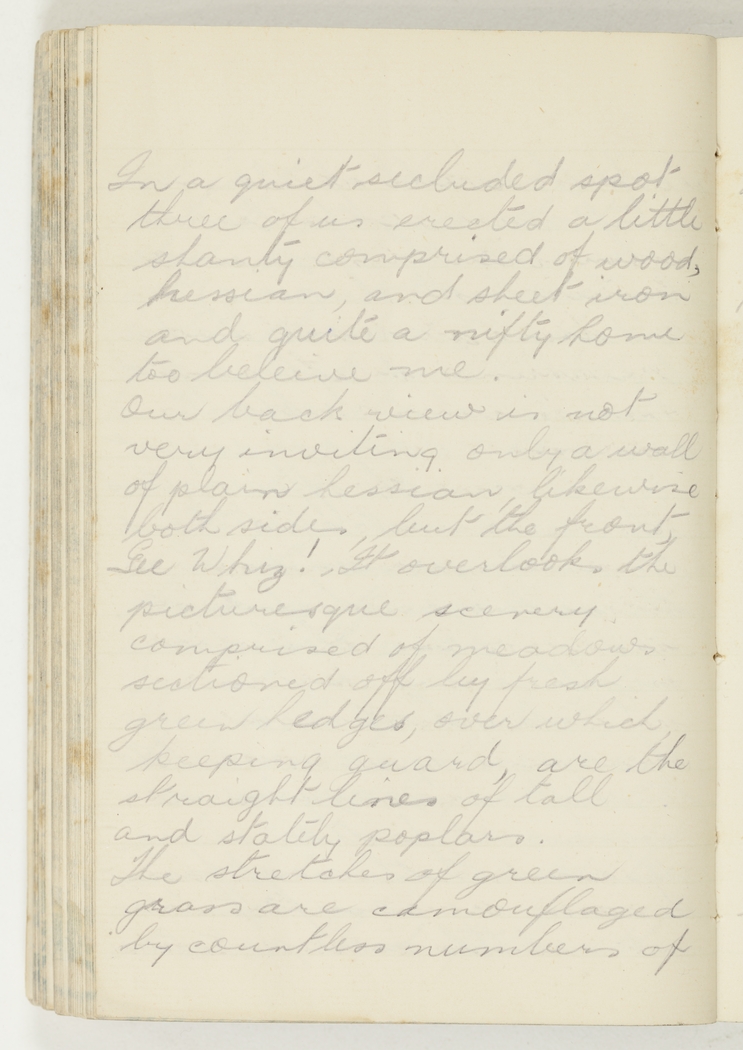 In a quiet secluded spot
three of us erected a little
shanty comprised of wood,
hessian, and sheet iron
and quite a nifty home
too beleive me.
Our back view is not
very inviting only a wall
of plain hessian, likewise
both sides, but the front,
Gee Whiz! It overlooks the
picturesque scenery
comprised of meadows
sectioned off by fresh
green hedges, over which,
keeping guard, are the
straight lines of tall
and stately poplars.
The stretches of green
grass are camouflaged
by countless numbers of